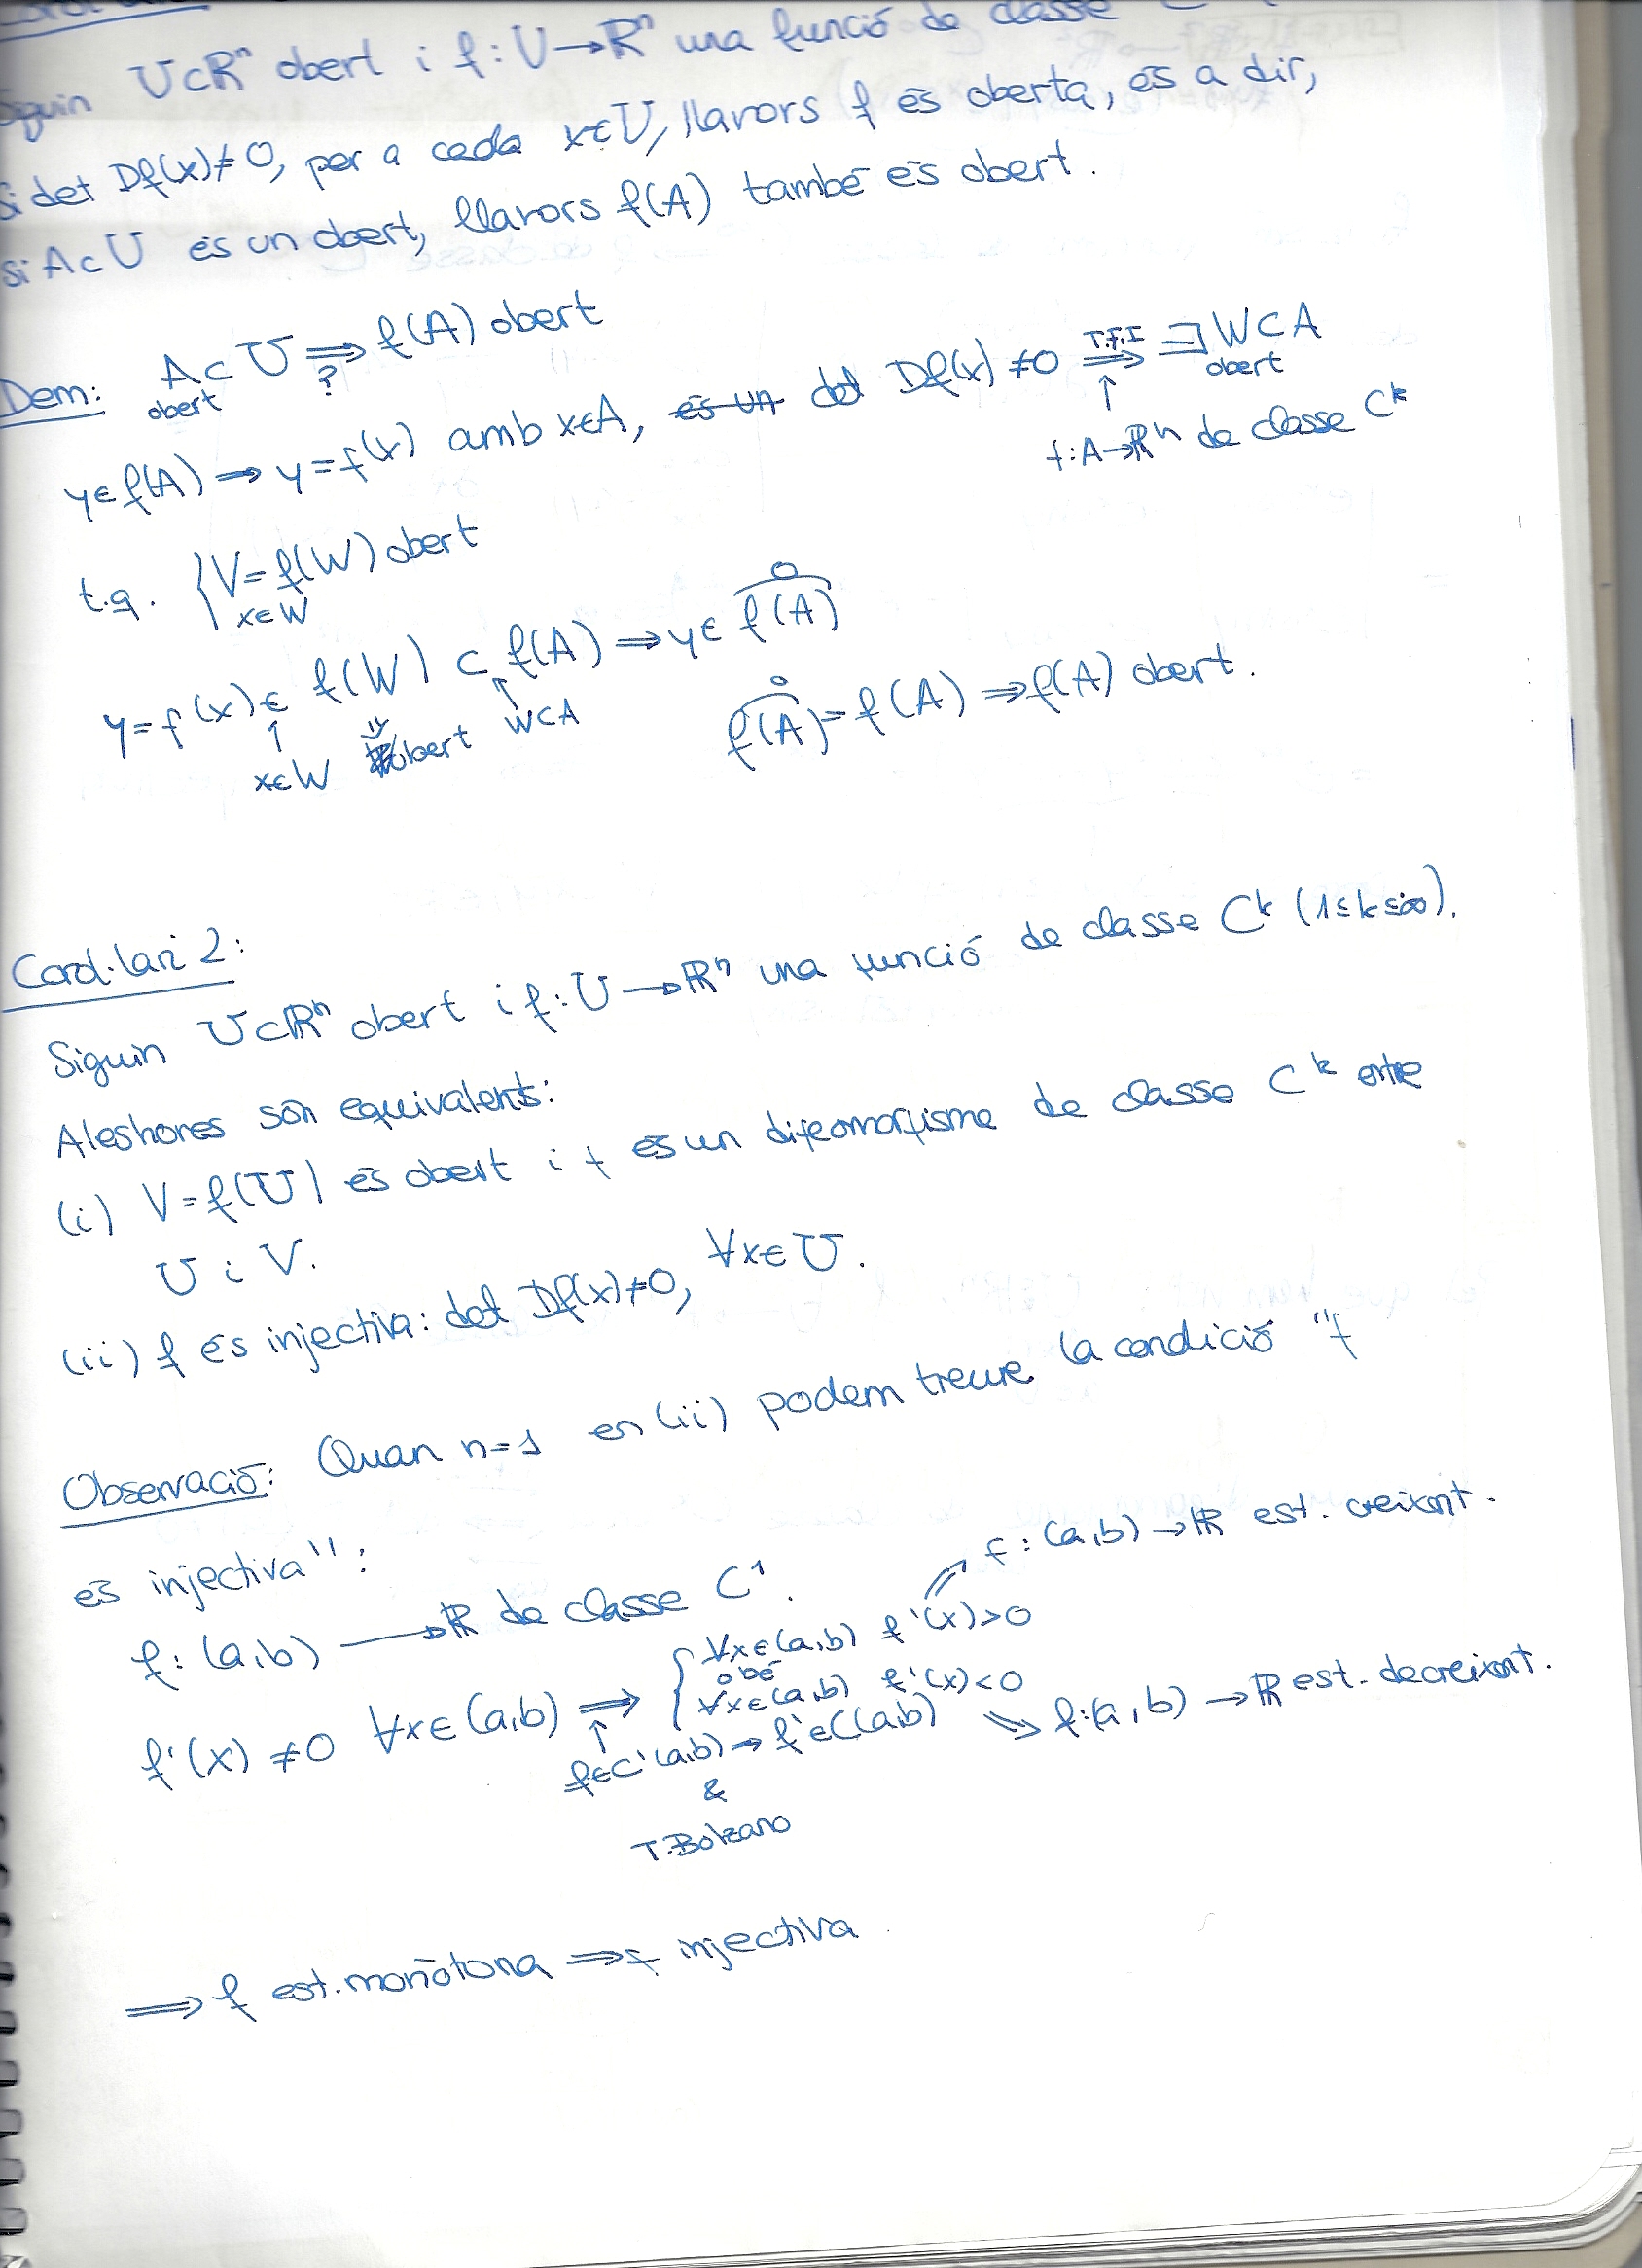 Siguin U⊂ℝⁿ obert i f:U→ℝⁿ una funció de classe
Si det Df(x)≠0, per a cada x∈U, llavors f és oberta, és a dir,
si A⊂U és un obert, llavors f(A) també és obert.
Dem: A⊂U ⟹ f(A) obert
obert ?
y∈f(A) ⟹ y=f(x) amb x∈A, és un det Df(x)≠0 ⟹ ∃W⊂A
T.F.I obert
↑
f:A→ℝⁿ de classe Cᵏ
t.q. { V=f(W) obert
x∈W
y=f(x)∈ f(W) ⊂ f(A) ⟹ y∈ f(A)°
↑ ⇓ ↑
x∈W obert W⊂A
f(A)° = f(A) ⟹ f(A) obert.
Corol·lari 2:
Siguin U⊂ℝⁿ obert i f:U→ℝⁿ una funció de classe Cᵏ (1≤k≤∞).
Aleshores són equivalents:
(i) V=f(U) és obert i f és un difeomorfisme de classe Cᵏ entre
U i V.
(ii) f és injectiva: det Df(x)≠0, ∀x∈U.
Observació: Quan n=1 en (ii) podem treure la condició "f
és injectiva":
f: (a,b) → ℝ de classe C¹.
f'(x)≠0 ∀x∈(a,b) ⟹ { ∀x∈(a,b) f'(x)>0 ⟹ f:(a,b)→ℝ est. creixent.
o bé
∀x∈(a,b) f'(x)<0 ⟹ f:(a,b)→ℝ est. decreixent.
↑
f∈C¹(a,b) → f'∈C(a,b)
&
T.Bolzano
⟹ f est. monótona ⟹ f injectiva